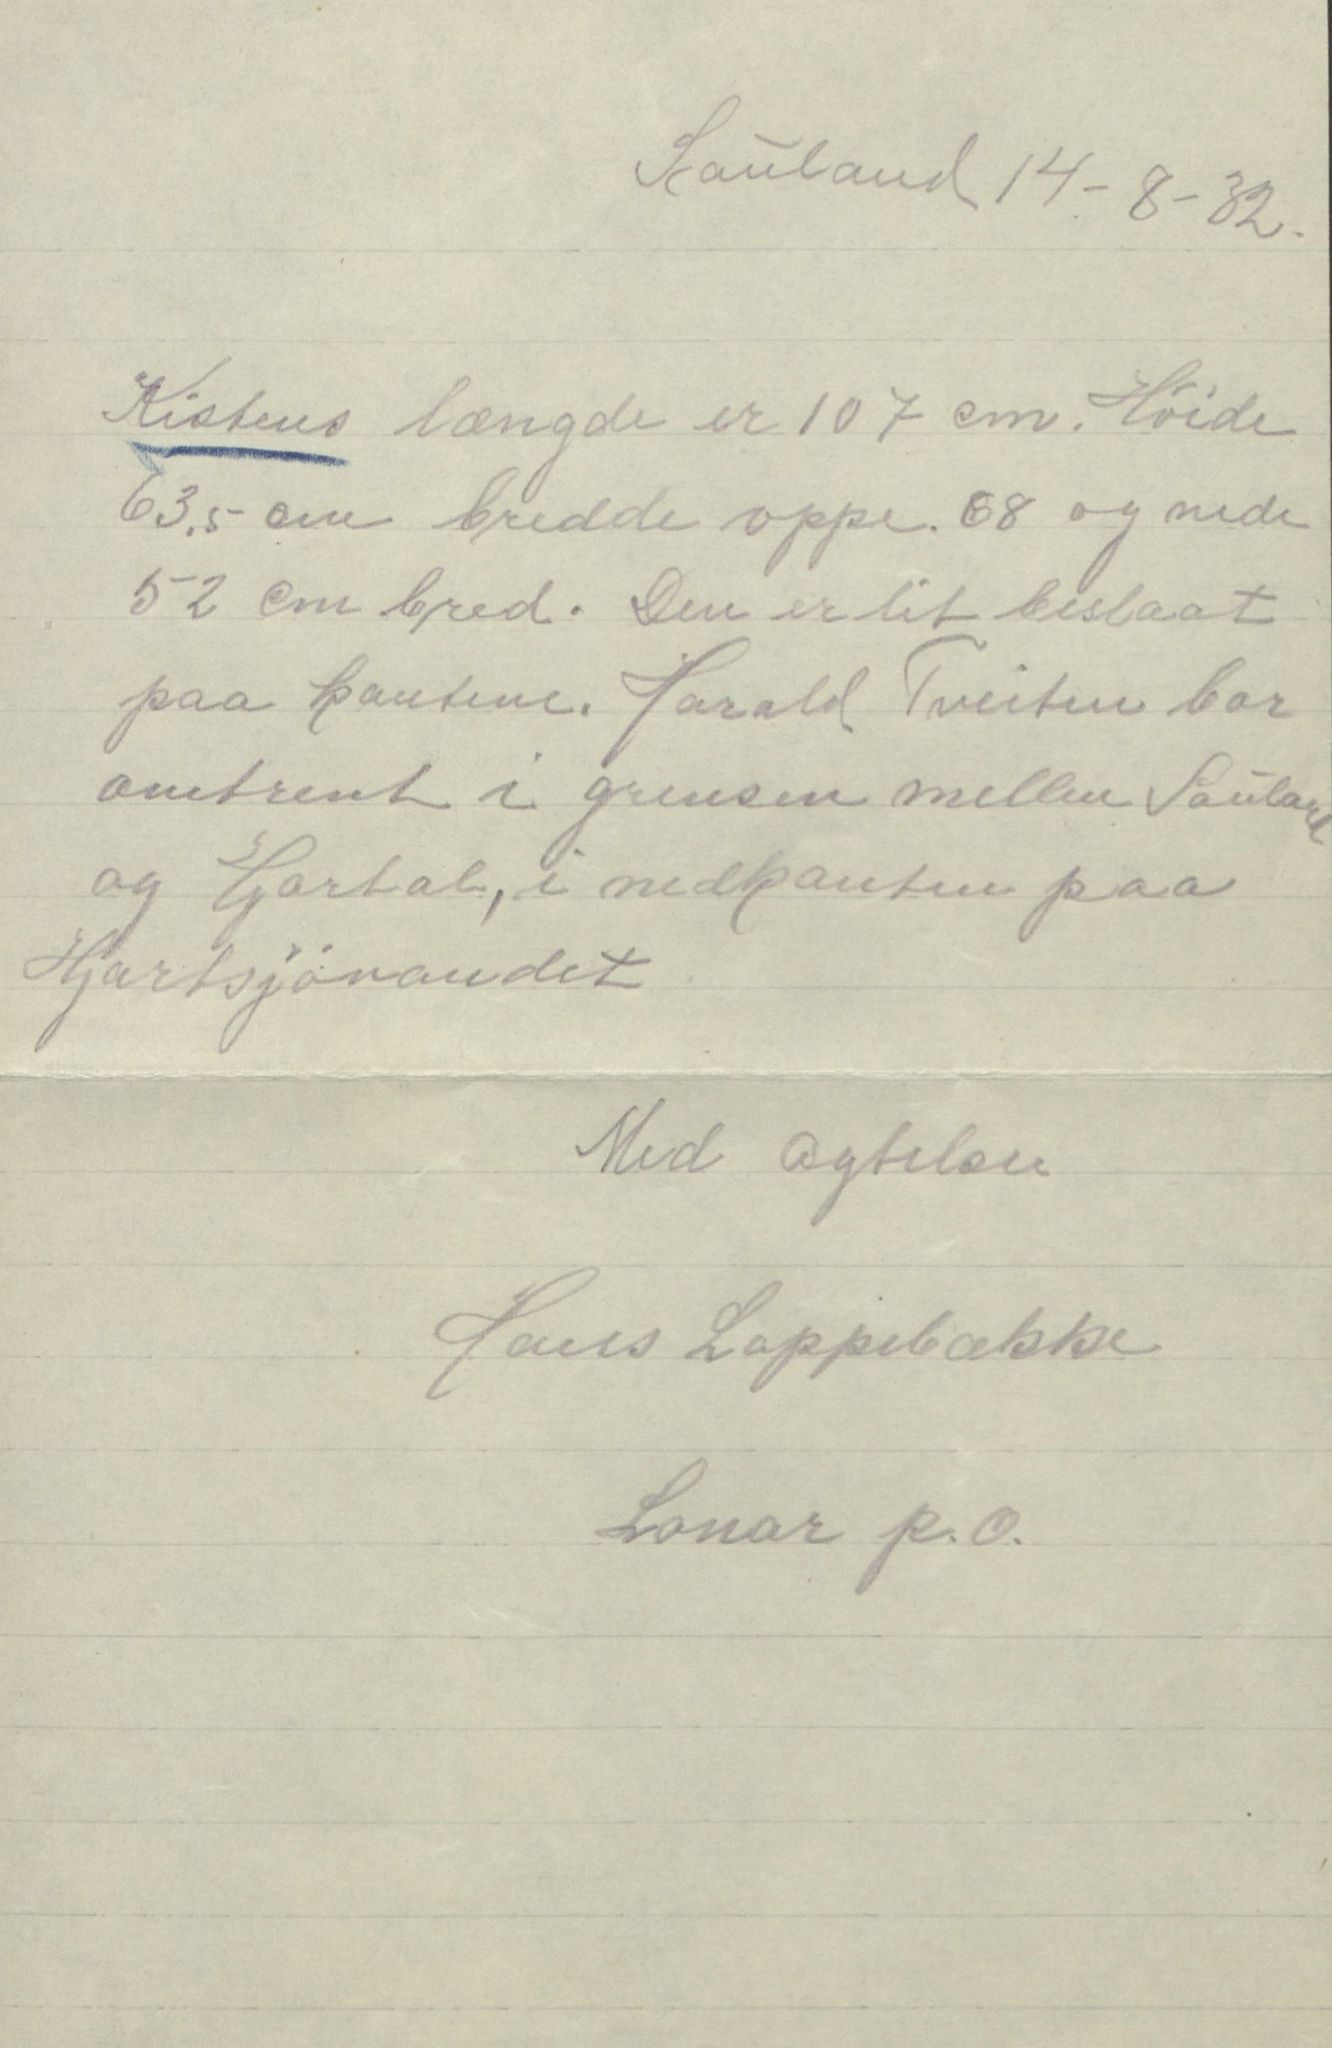 Sauland 14-8-32.
Kistens længde er 107 cm. Höide
63,5 cm bredde oppe. 68 og nede
52 cm bred. Den er lit beslaat
paa kantene. Harald Tveiten bor
omtrent i grensen mellem Sauland
og Hjartal, i nedkanten paa
Hjartsjövandet
Med agtelse
Hans Loppebække
Lonar p.o.